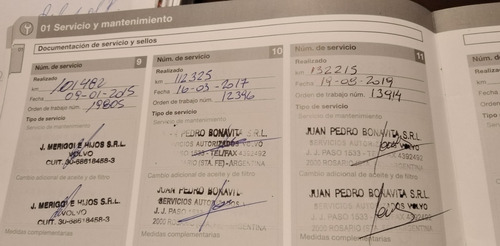 01 Servicio y mantenimiento
Documentación de servicio y sellos
Núm. de servicio 9
Realizado
km 101482
Fecha 09-01-2015
Orden de trabajo núm. 19805
Tipo de servicio
Servicio de mantenimiento
J. MERIGGI E HIJOS S.R.L.
VOLVO
CUIT. 30-68618488-3
Cambio adicional de aceite y de filtro
J. MERIGGI E HIJOS S.R.L.
VOLVO
CUIT.
Medidas complementarias
Núm. de servicio 10
Realizado
km 112325
Fecha 16-03-2017
Orden de trabajo núm. 12396
Tipo de servicio
Servicio de mantenimiento
PEDRO BONAVITA S.R.L.
SERVICIOS AUTORIZADOS VOLVO
1533 - TEL/FAX 4392492
(STA. FE) - ARGENTINA
Cambio adicional de aceite y de filtro
JUAN PEDRO BONAVIT
SERVICIOS AUTORIZADOS
J. J. PASO
2000
Medidas complementarias
Núm. de servicio 11
Realizado
km 132215
Fecha 14-05-2019
Orden de trabajo núm. 13914
Tipo de servicio
Servicio de mantenimiento
JUAN PEDRO BONAVITA S.R.L.
SERVICIOS VOLVO
J. J. PASO 1533 - 4392492
2000 ROSARIO
Cambio adicional de aceite y de filtro
JUAN PEDRO BONAVITA S.R.L.
SERVICIOS VOLVO
J. J. PASO 1533
2000 ROSARIO
Medidas complementarias
Núm. d
Realizado
km
Fecha
Orden
Tipo